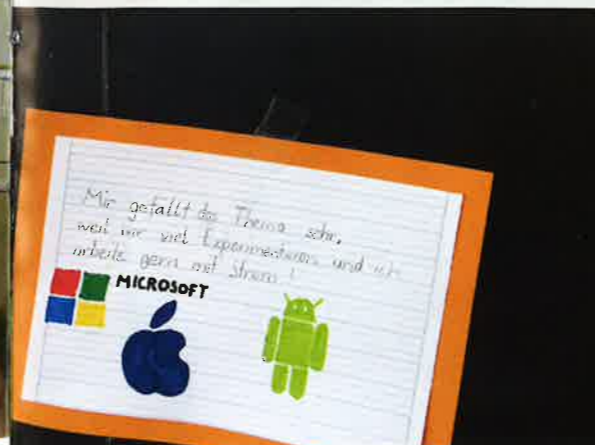 Mir gefällt das Thema sehr,
weil wir viel Experimentieren und ich
arbeite gern mit Strom!
MICROSOFT